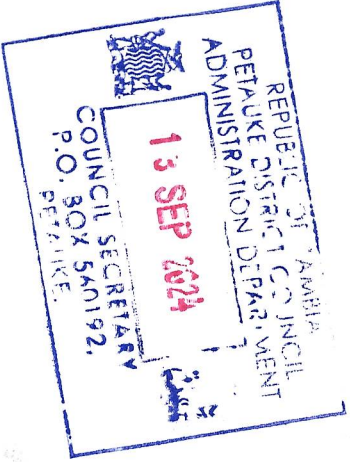 REPUBLIC OF ZAMBIA
PETAUKE DISTRICT COUNCIL
ADMINISTRATION DEPARTMENT
13 SEP 2024
COUNCIL SECRETARY
P.O. BOX 560192,
PETAUKE.